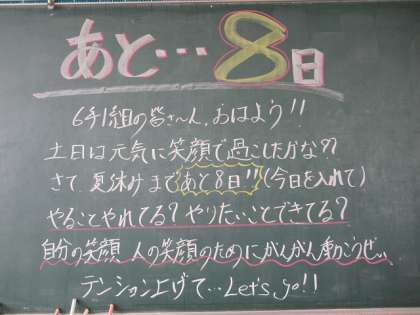 あと…8日
6年1組の皆さ〜ん、おはよう!!
土日は元気に笑顔で過ごしたかな??
さて夏休みまであと8日!!(今日を入れて)
やることやれてる?やりたいことできてる?
自分の笑顔 人の笑顔のためにがんがん動こうぜぃ
テンション上げて…Let's go!!